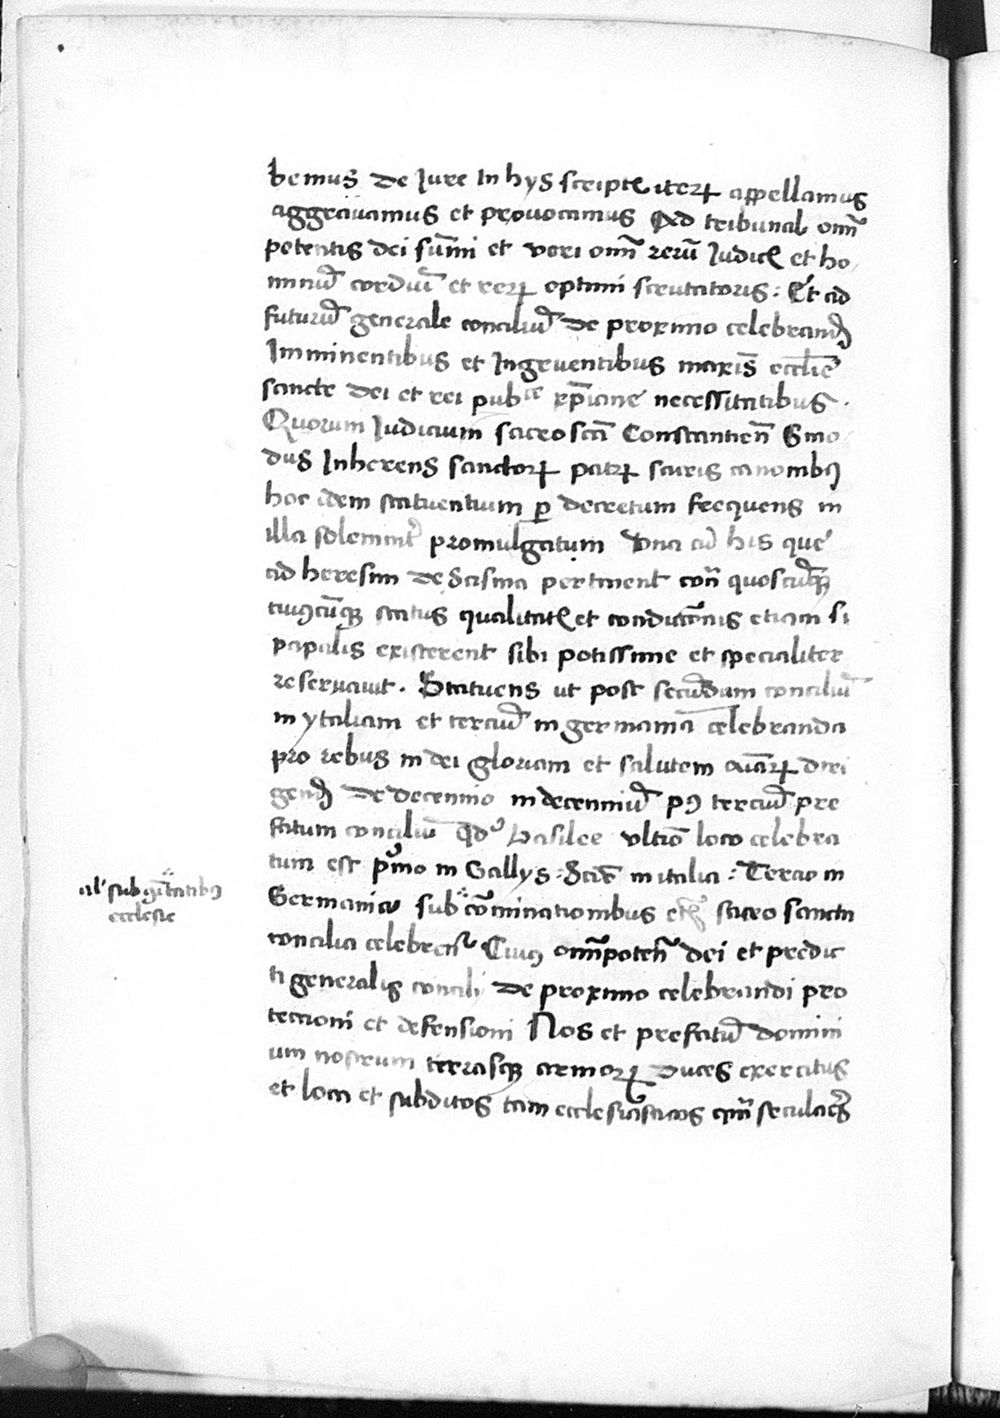 bemus de Jure In hys script iter appellamus
aggravamus et provocamus Ad tribunal omĩ
petentis dei sum̃i et veri omĩ rerũ Judic et ho
minũ cordiũ et rer optimi scrutatoris: Et ad
futurũ generale conciliũ de proximo celebrand
Imminentibus et Ingruentibus maxis̃ ecclie
sancte dei et rei pubce xp̃iane necessitatibus.
Quorum Judicium sacroscta Constantien̄ Sino
dus Inherens sanctor patr sacris canonibꝯ
hoc idem statuentium ꝑ decretum frequens in
illa solemnit promulgatum Una cũ his que
ad heresim de scisma pertinent con̄ quoscũqꝫ
cuiꝯcũqꝫ status qualitat et condicõnis etiam si
papalis existerent sibi potissime et specialiter
reservavit. Statuens ut post secũdum conciliũ
in ytaliam et terciũ in germania celebranda
pro rebus in dei gloriam et salutem aĩar diri
gend de decennio in decenniũ pꝯ terciũ pre
fatum conciliũ qd Basilee ultĩo loco celebra
tum est pĩmo in Gallys: Scdo in italia: Tercio in
Germania sub cõminationibus sacro sancta
concilia celebrenr Cuiꝯ omĩpoten̄ dei et predic
ti generalis concilij de proximo celebrandi pro
tectioni et defensioni Nos et prefatũ domini
um nostrum terrasqꝫ armor duces exercitus
et loca et subditos tam ecclesiasticos qm̃ seculares
al' sub
ecclesie